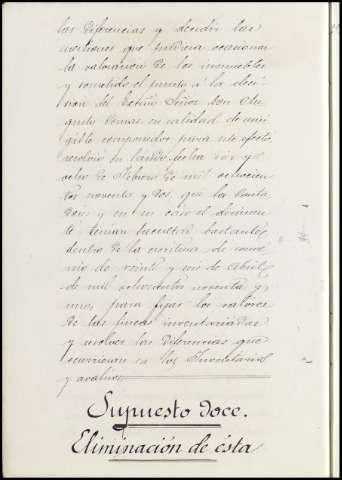 las diferencias y decidir las
cuestiones que pudiera ocasionar
la valoración de los inmuebles
y sometido el punto á la deci-
sion del Exmo Señor Don Au-
gusto Comas, en calidad de ami-
gable componedor para este efecto,
resolvió en laudo fecha diez y
ocho de Febrero de mil ochocien-
tos noventa y dos, que los Conta-
dores y en su caso el dirimen-
te tenian facultad bastante,
dentro de la escritura de conve-
nio de veinte y uno de Abril
de mil ochocientos noventa y
uno, para fijar los valores
de las fincas inventariadas
y resolver las diferencias que
ocurrieran en los Inventarios
y avaluos
Supuesto doce.
Eliminación de ésta